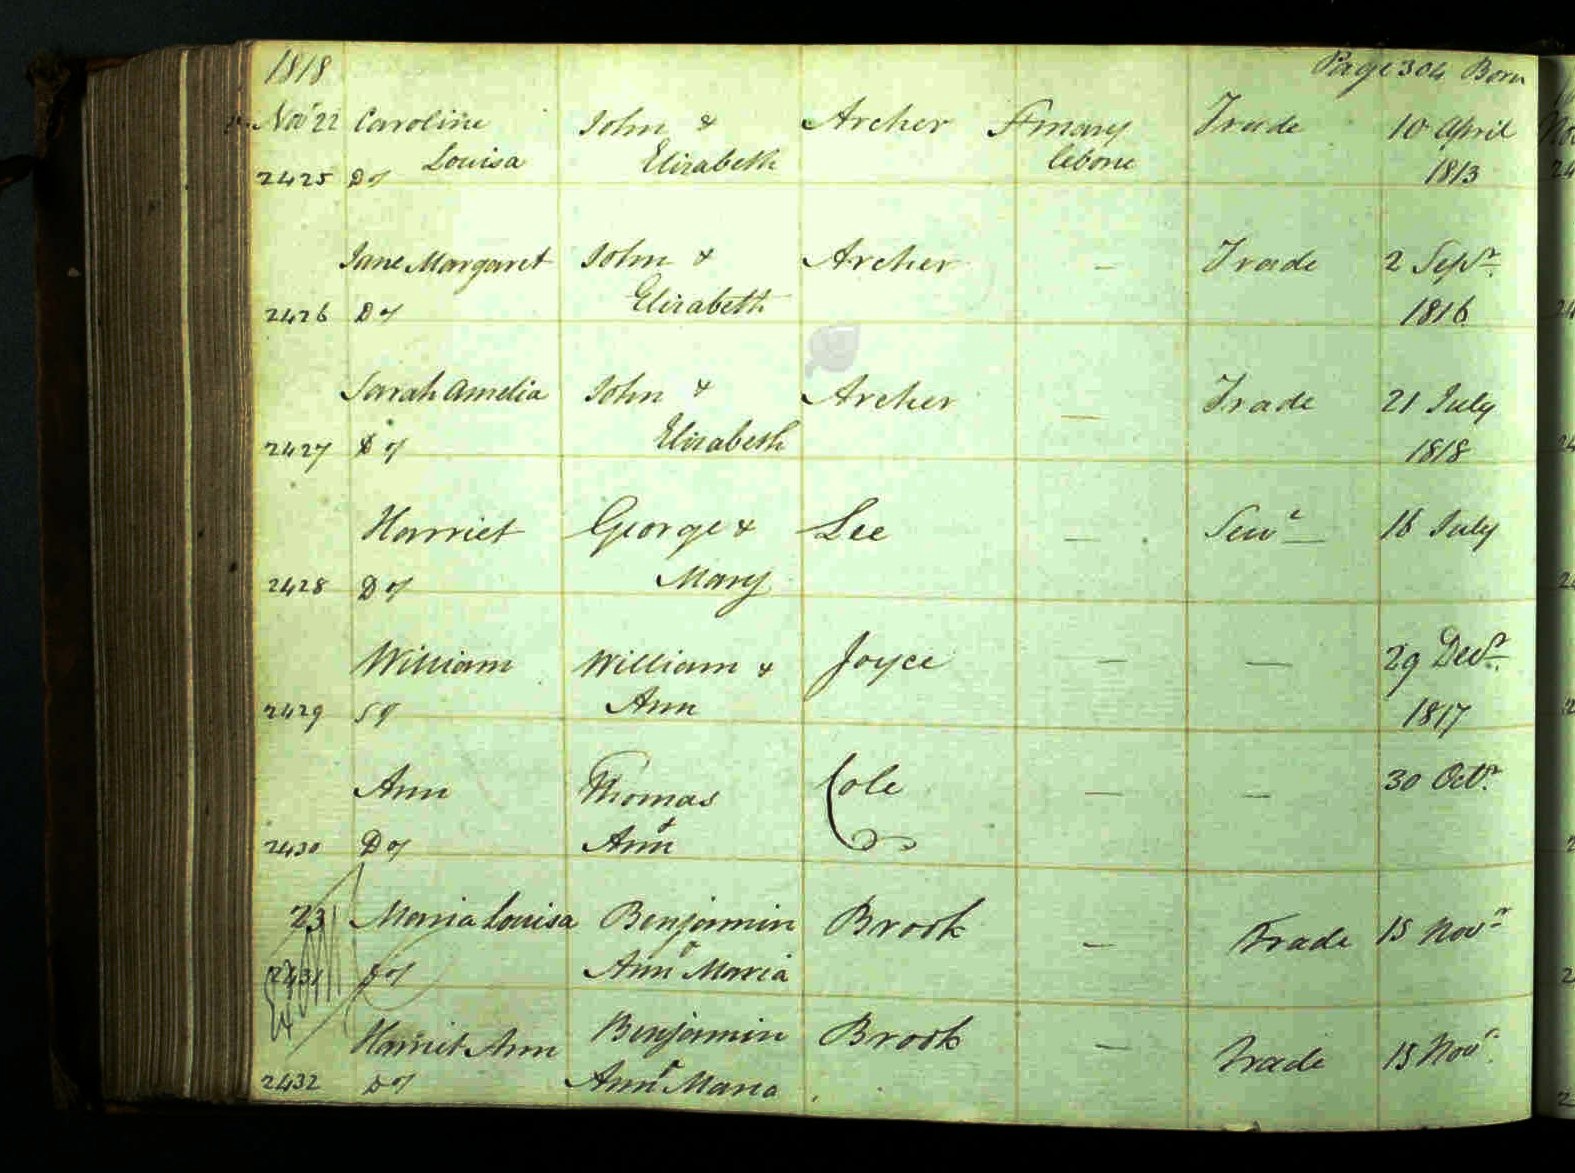 1818 Page 304 Born
Nov 22 Caroline John & Archer St mary Trade 10 April
Louisa Elizabeth lebone 1813
2425 D of
Jane Margaret John & Archer — Trade 2 Sepr.
2426 D of Elizabeth 1816
Sarah Amelia John & Archer — Trade 21 July
2427 D of Elizabeth 1818
Harriet George & Lee — Servt 16 July
2428 D of Mary
William William & Joyce — — 29 Decr.
2429 S of Ann 1817
Ann Thomas Cole — — 30 Octr.
2430 D of & Ann
23 Maria Louisa Benjamin Brook — Trade 15 Novr
2431 D of & Ann Maria
Harriet Ann Benjamin Brook — Trade 15 Novr.
2432 D of & Ann Maria